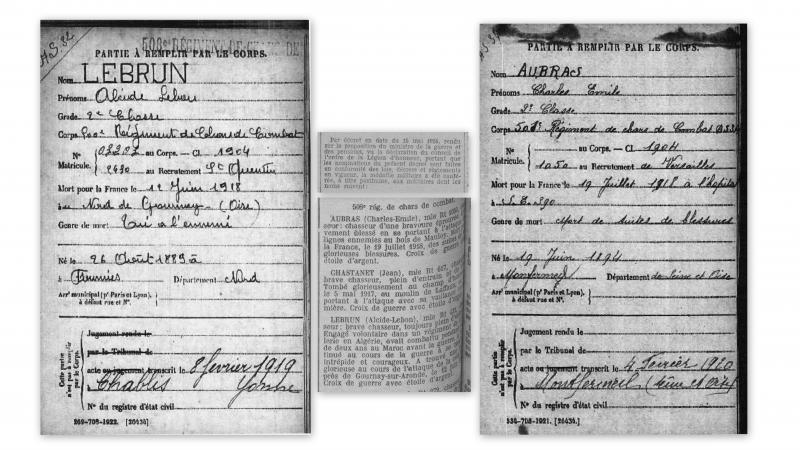 A.S. 32
508e RÉGIMENT DE CHARS DE
PARTIE À REMPLIR PAR LE CORPS.
Nom LEBRUN
Prénoms Alcide Lebon
Grade 2e Classe
Corps 500e Régiment de Chars de Combat
N° au Corps. — Cl 1904
Matricule. 2430 au Recrutement St Quentin
Mort pour la France le 12 Juin 1918
à au Nord de Gournay (Oise)
Genre de mort Tué à l'ennemi
Né le 26 Août 1889
à Fourmies Département Nord
Arrt municipal (pr Paris et Lyon),
à défaut rue et N°.
Cette partie
n'est pas à remplir
par le Corps.
Jugement rendu le
par le Tribunal de
acte ou jugement transcrit le 8 février 1919
à Chablis Yonne
N° du registre d'état civil
269-708-1922. [26434.]
Par décret en date du 15 mai 1925, rendu
sur la proposition du ministre de la guerre et
des pensions, vu la déclaration du conseil de
l'ordre de la Légion d'honneur, portant que
les nominations du présent décret sont faites
en conformité des lois, décrets et règlements
en vigueur, la médaille militaire a été conférée,
à titre posthume, aux militaires dont les
noms suivent :
509e rég. de chars de combat.
AUBRAS (Charles-Emile), mle Rt
seur: chasseur d'une bravoure éprouvée
vement blessé en se portant à l'attaque
lignes ennemies au bois de Mauloy
France, le 19 juillet 1918, des suites
glorieuses blessures. Croix de
étoile d'argent.
CHASTANET (Jean), mle Rt 457,
brave chasseur, plein d'entrain
Tombé glorieusement au champ
le 5 mai 1917, au moulin de Laffaux
portant à l'attaque avec sa vaillance
mière. Croix de guerre avec étoile
LEBRUN (Alcide-Lebon), mle Rt
seur; brave chasseur, toujours
Engagé volontaire dans un régiment
lerie en Algérie, avait combattu
de deux ans au Maroc avant la guerre
tinué au cours de la guerre à
intrépide et courageux. A trouvé
glorieuse au cours de l'attaque du
près de Gournay-sur-Aronde, le
Croix de guerre avec étoile d'
PARTIE À REMPLIR PAR LE CORPS.
Nom AUBRAS
Prénoms Charles Emile
Grade 2e Classe
Corps Régiment de chars de Combat
N° au Corps. — Cl. 1904
Matricule. 1050 au Recrutement de Versailles
Mort pour la France le 19 Juillet 1918 à l'hôpital
à
Genre de mort Mort de suites de blessures
Né le 19 Juin 1894
à Montfermeil Département de Seine et Oise
Arrt municipal (pr Paris et Lyon),
à défaut rue et N°.
Cette partie
n'est pas à remplir
par le Corps.
Jugement rendu le
par le Tribunal de
acte ou jugement transcrit le 4 Février 1920
à Montfermeil (Seine et Oise)
N° du registre d'état civil
534-708-1921. [26434.]